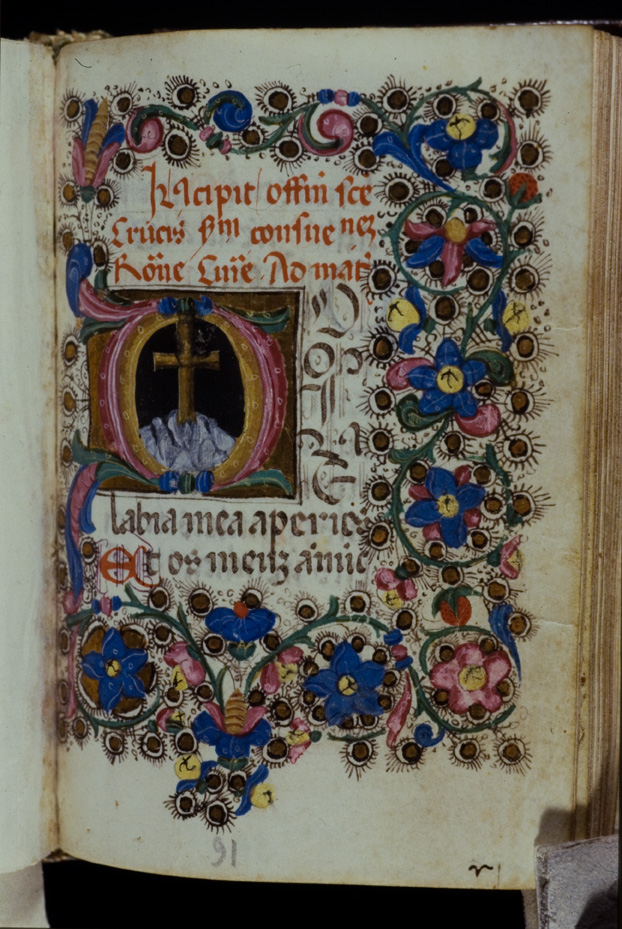 Incipit offm̄ sc̄e
Crucis sm̄ consue nez
Rōne Curīe. Ad mat̄
labia mea aperies
Et os meuz an̄uc
91